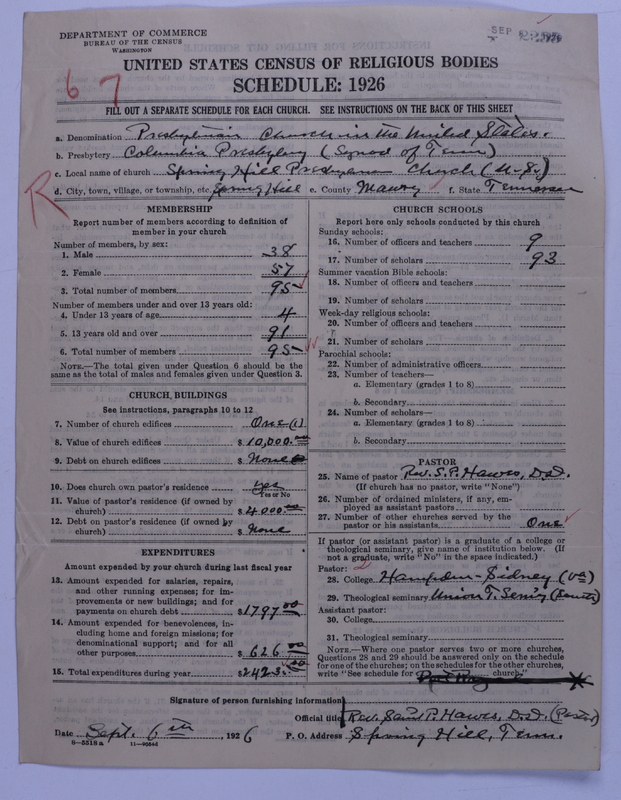 DEPARTMENT OF COMMERCE
BUREAU OF THE CENSUS
WASHINGTON
SEP
UNITED STATES CENSUS OF RELIGIOUS BODIES
SCHEDULE: 1926
67
FILL OUT A SEPARATE SCHEDULE FOR EACH CHURCH. SEE INSTRUCTIONS ON THE BACK OF THIS SHEET
a. Denomination Presbyterian Church in the United States.
b. Presbytery Columbia Presbytery (Synod of Tenn)
c. Local name of church Spring Hill Presbyterian Church (U.S.)
R
d. City, town, village, or township, etc. Spring Hill e. County Maury f. State Tennessee
MEMBERSHIP
Report number of members according to definition of
member in your church
Number of members, by sex:
1. Male 38
2. Female 57
3. Total number of members 95
Number of members under and over 13 years old:
4. Under 13 years of age 4
5. 13 years old and over 91
6. Total number of members 95
NOTE.—The total given under Question 6 should be
same as the total of males and females given under Question 3.
CHURCH BUILDINGS
See instructions, paragraphs 10 to 12
7. Number of church edifices One (1)
8. Value of church edifices $ 10,000.00
9. Debt on church edifices $ None
10. Does church own pastor's residence yes
Yes or No
11. Value of pastor's residence (if owned by
church) $ 4000.00
12. Debt on pastor's residence (if owned by
church) $ None
EXPENDITURES
Amount expended by your church during last fiscal year
13. Amount expended for salaries, repairs,
and other running expenses; for im-
provements or new buildings; and for
payments on church debt $ 1797.00
14. Amount expended for benevolences, in-
cluding home and foreign missions; for
denominational support; and for all
other purposes $ 626.00
15. Total expenditures during year $ 2423.00
CHURCH SCHOOLS
Report here only schools conducted by this church
Sunday schools:
16. Number of officers and teachers 9
17. Number of scholars 93
Summer vacation Bible schools:
18. Number of officers and teachers
19. Number of scholars
Week-day religious schools:
20. Number of officers and teachers
21. Number of scholars
Parochial schools:
22. Number of administrative officers
23. Number of teachers—
a. Elementary (grades 1 to 8)
b. Secondary
24. Number of scholars—
a. Elementary (grades 1 to 8)
b. Secondary
PASTOR
25. Name of pastor Rev. S.P. Hawes, D.D.
(If church has no pastor, write "None")
26. Number of ordained ministers, if any, em-
ployed as assistant pastors
27. Number of other churches served by the
pastor or his assistants One
If pastor (or assistant pastor) is a graduate of a college or
theological seminary, give name of institution below. (If
not a graduate, write "No" in the space indicated.)
Pastor:
28. College Hampden-Sidney (Va)
29. Theological seminary Union T. Sem'y (South)
Assistant pastor:
30. College
31. Theological seminary
NOTE.—Where one pastor serves two or more churches,
Questions 28 and 29 should be answered only on the schedule
for one of the churches; on the schedules for the other churches,
write "See schedule for church."
Signature of person furnishing information
Official title Rev. Saml P. Hawes, D.D. (Pastor)
Date Sept. 6th, 1926 P. O. Address Spring Hill, Tenn.
6-5518 a 11-9264d